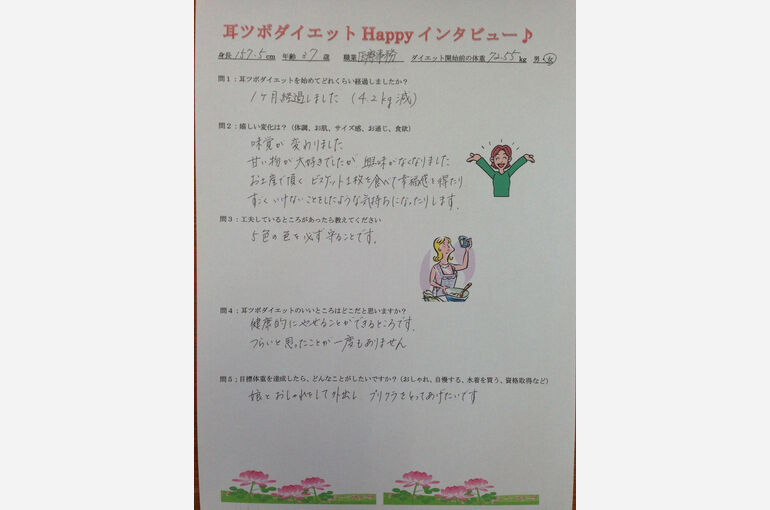 耳ツボダイエット Happy インタビュー♪
身長 157.5 cm 年齢 37 歳 職業 医療事務 ダイエット開始前の体重 72.55 kg 男・女
問1：耳ツボダイエットを始めてどれくらい経過しましたか？
1ヶ月経過しました (4.2kg減)
問2：嬉しい変化は？（体調、お肌、サイズ感、お通じ、食欲）
味覚が変わりました
甘い物が大好きでしたが 興味がなくなりました
お土産で頂く ビスケット1枚を食べて幸福感を得たり
すごくいけないことをしたような気持ちになったりします.
問3：工夫しているところがあったら教えてください
5色の色を必ず守ることです.
問4：耳ツボダイエットのいいところはどこだと思いますか？
健康的にやせることができるところです.
つらいと思ったことが一度もありません
問5：目標体重を達成したら、どんなことがしたいですか？（おしゃれ、自慢する、水着を買う、資格取得など）
娘とおしゃれをして外出し プリクラをとってあげたいです